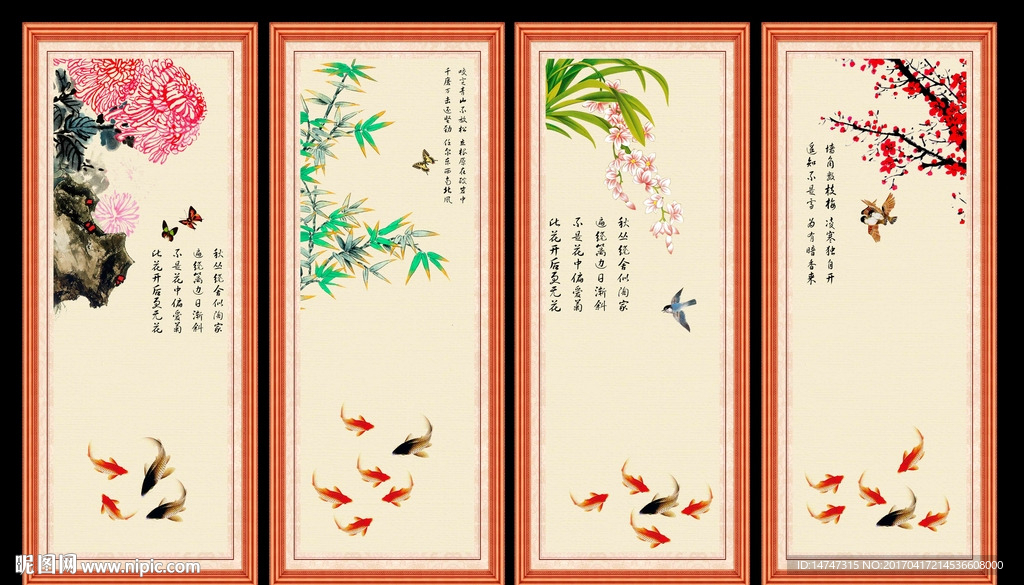 秋丛绕舍似陶家
遍绕篱边日渐斜
不是花中偏爱菊
此花开后更无花
咬定青山不放松 立根原在破岩中
千磨万击还坚劲 任尔东西南北风
秋丛绕舍似陶家
遍绕篱边日渐斜
不是花中偏爱菊
此花开后更无花
墙角数枝梅 凌寒独自开
遥知不是雪 为有暗香来
昵图网 www.nipic.com
ID:14747315 NO:20170417214536608000